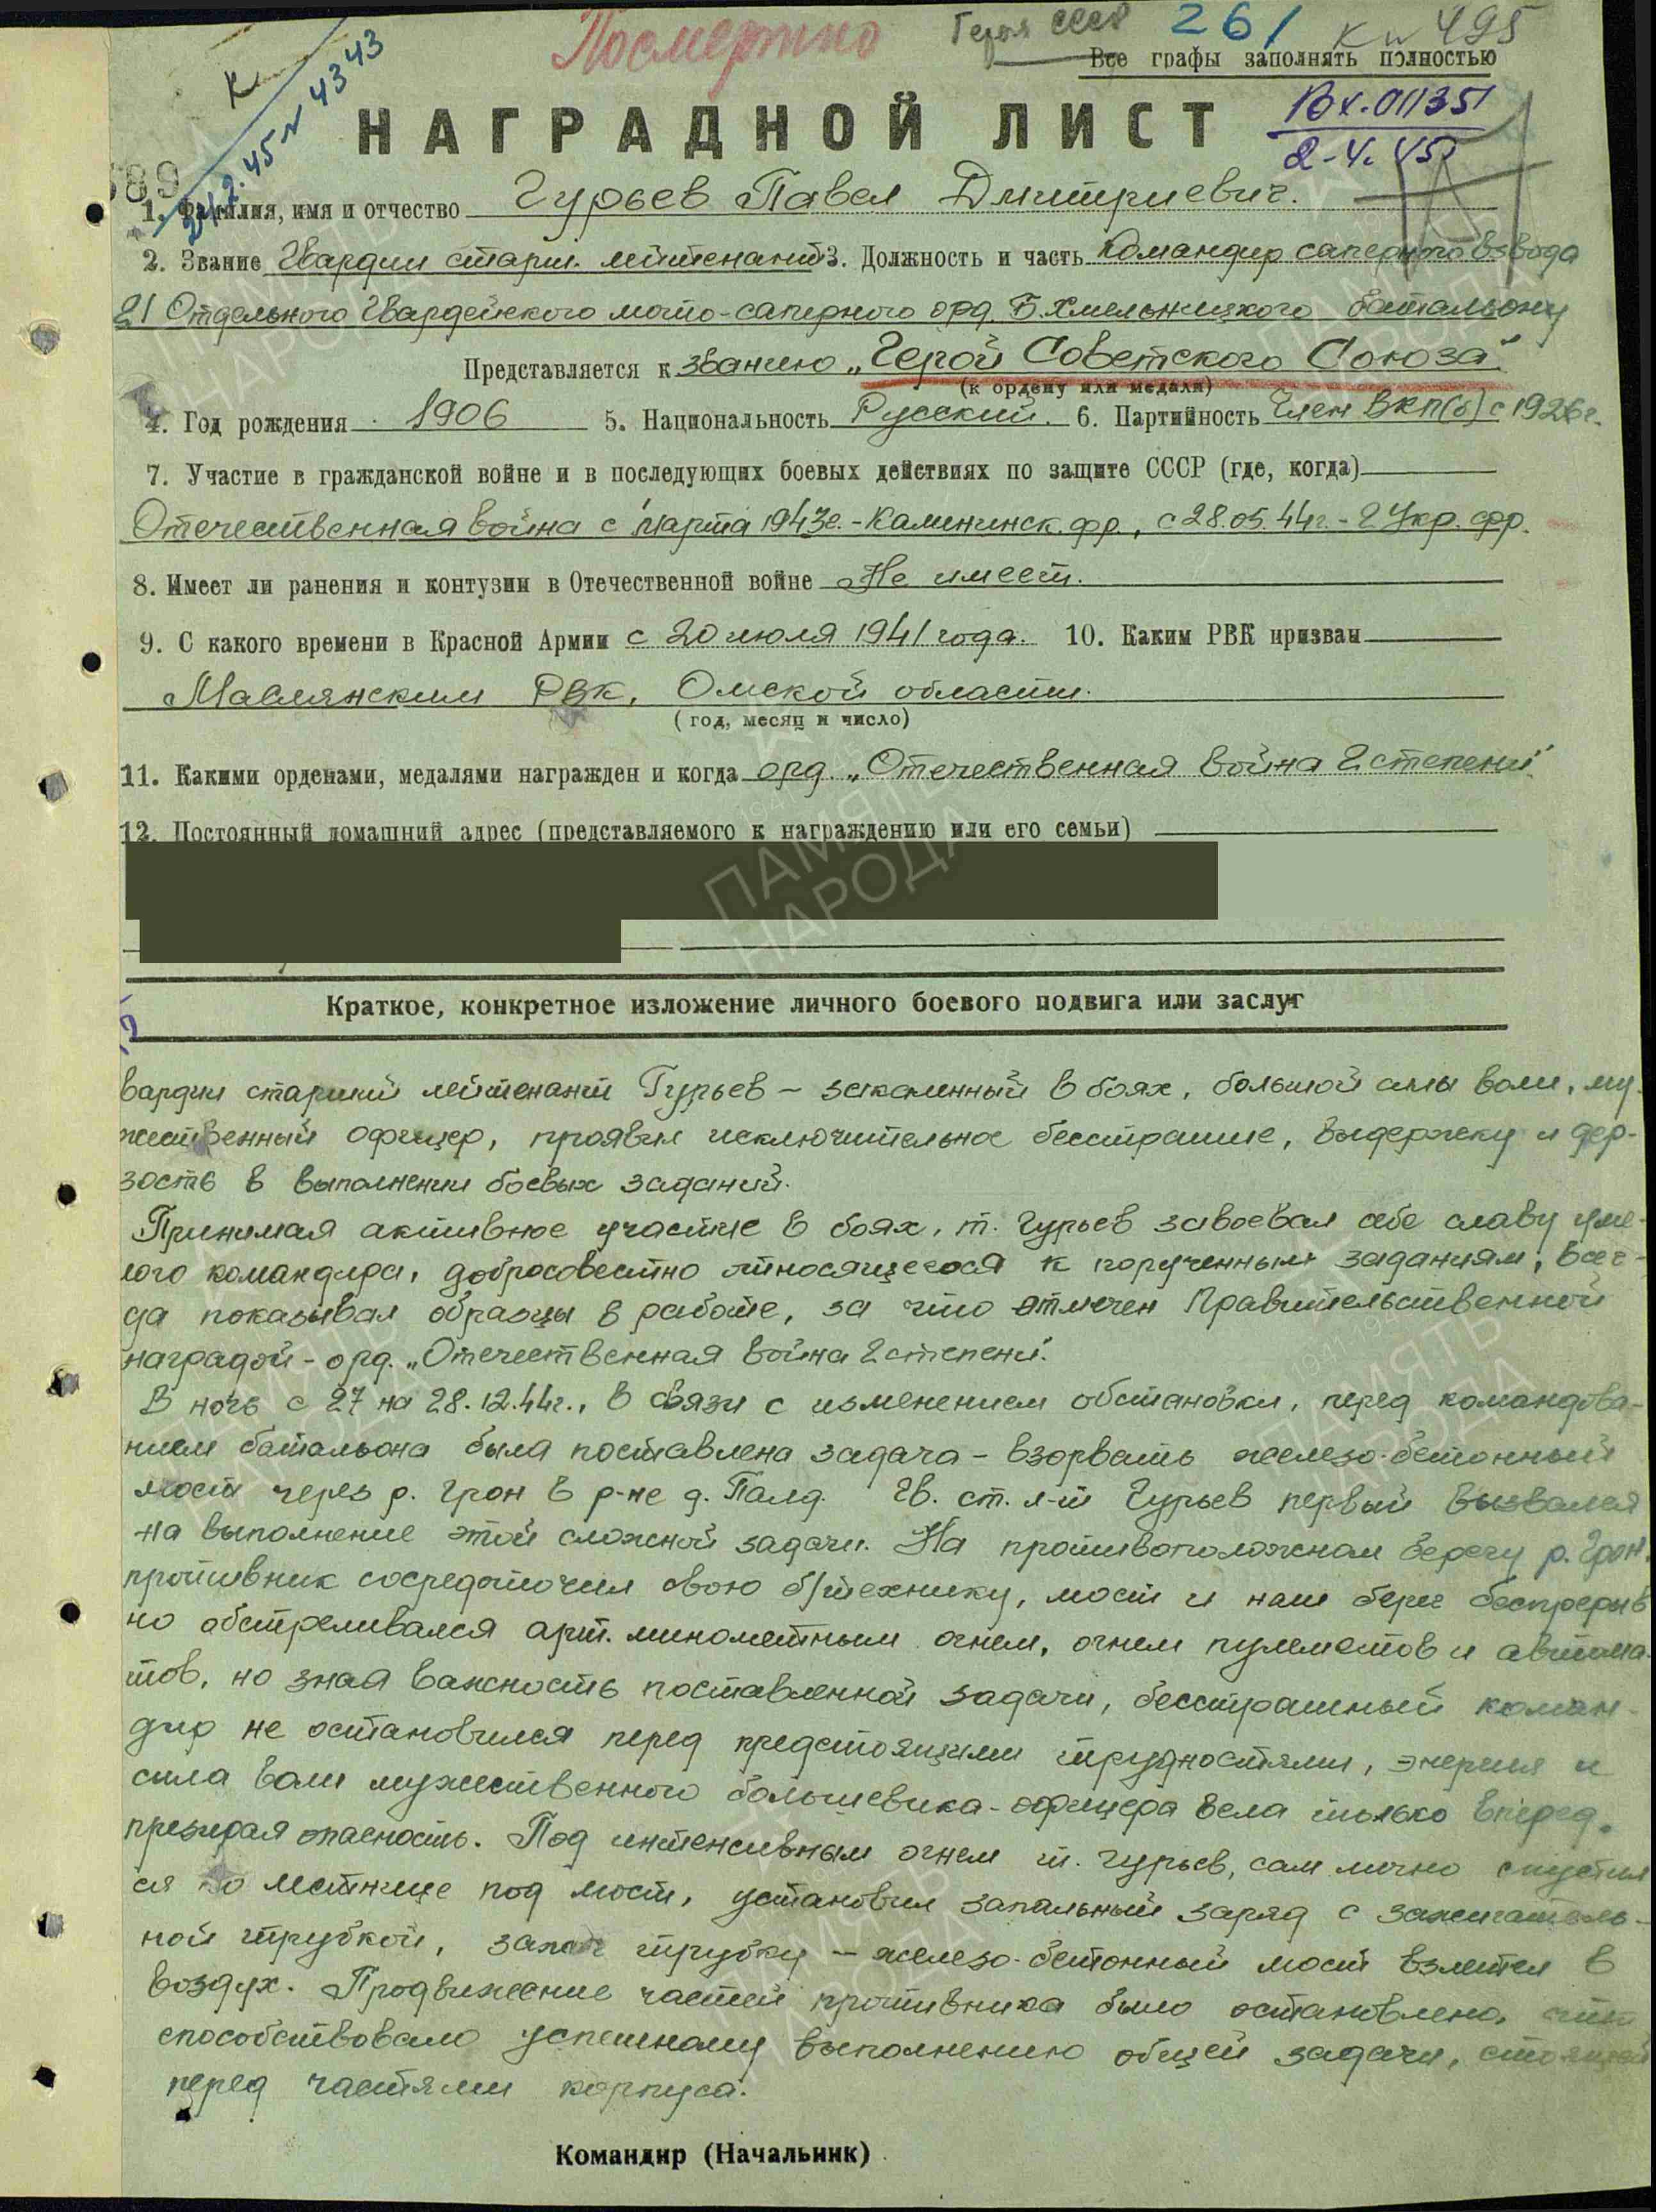 Посмертно Героя СССР 261 Кн 495
Все графы заполнять полностью
К
21.2.45 г 4343
НАГРАДНОЙ ЛИСТ
Вх. 01135
2-4.45
1. Фамилия, имя и отчество Гурьев Павел Дмитриевич.
2. Звание Гвардии старш. лейтенант 3. Должность и часть Командир саперного взвода
21 Отдельного Гвардейского мото-саперного орд. Б. Хмельницкого батальону
Представляется к званию „Герой Советского Союза"
(к ордену или медали)
4. Год рождения 1906 5. Национальность Русский. 6. Партийность Член ВКП(б) с 1926 г.
7. Участие в гражданской войне и в последующих боевых действиях по защите СССР (где, когда)
Отечественная война с марта 1943г. - Калининск. фр., с 28.05.44г. - 2 Укр. фр.
8. Имеет ли ранения и контузии в Отечественной войне Не имеет.
9. С какого времени в Красной Армии с 20 июля 1941 года. 10. Каким РВК призван
Маслянским РВК, Омской области.
(год, месяц и число)
11. Какими орденами, медалями награжден и когда орд. „Отечественная война 2 степени".
12. Постоянный домашний адрес (представляемого к награждению или его семьи)
Краткое, конкретное изложение личного боевого подвига или заслуг
вардии старший лейтенант Гурьев - закаленный в боях, большой силы воли, му-
жественный офицер, проявил исключительное бесстрашие, выдержку и дер-
зость в выполнении боевых заданий.
Принимая активное участие в боях, т. Гурьев завоевал себе славу уме-
лого командира, добросовестно относящегося к порученным заданиям, всег-
да показывал образцы в работе, за что отмечен Правительственной
наградой - орд. „Отечественная война 2 степени".
В ночь с 27 на 28.12.44г., в связи с изменением обстановки, перед командова-
нием батальона была поставлена задача - взорвать железо-бетонный
мост через р. Грон в р-не д. Палд. Гв. ст. л-т Гурьев первый вызвался
на выполнение этой сложной задачи. На противоположном берегу р. Грон,
противник сосредоточил свою б/технику, мост и наш берег беспрерыв
но обстреливался арт. минометным огнем, огнем пулеметов и автома-
тов, но зная важность поставленной задачи, бесстрашный коман-
дир не остановился перед предстоящими трудностями, энергия и
сила воли мужественного большевика-офицера вела только вперед,
презирая опасность. Под интенсивным огнем т. Гурьев, сам лично спустил
ся по лестнице под мост, установил запальный заряд с зажигатель-
ной трубкой, зажег трубку - железо-бетонный мост взлетел в
воздух. Продвижение частей противника было остановлено, что
способствовало успешному выполнению общей задачи, стоящей
перед частями корпуса.
Командир (Начальник)
ПАМЯТЬ
НАРОДА